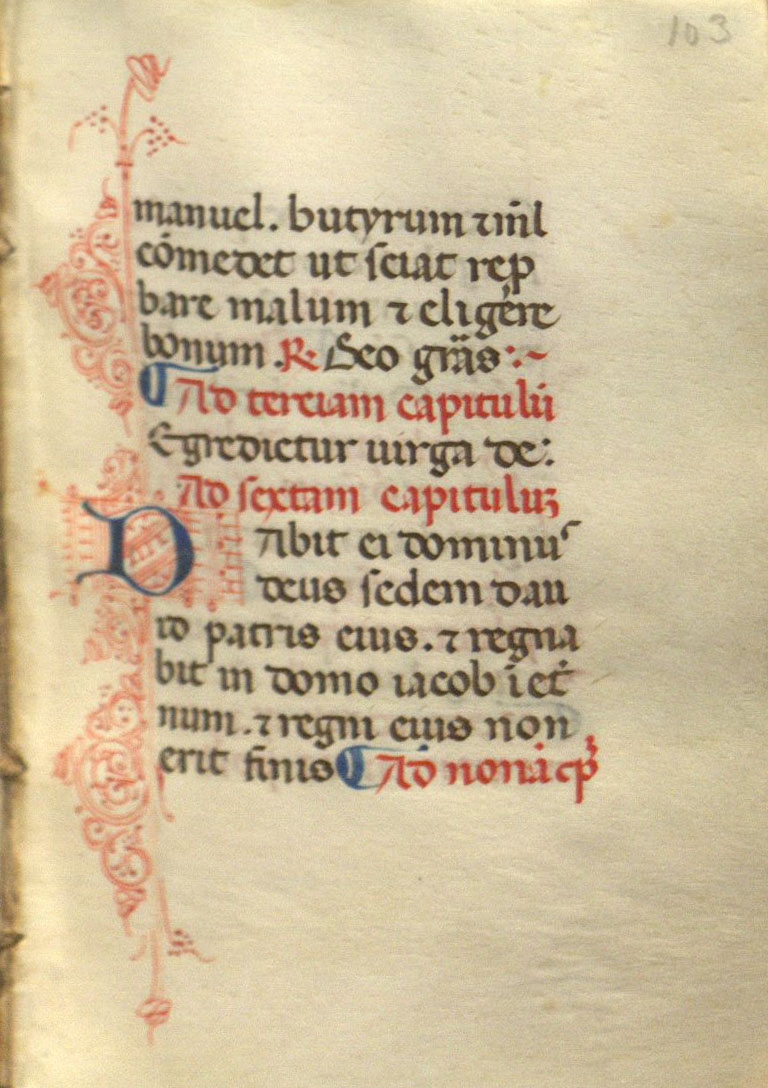 103
manuel. butyrum ⁊ mł
comedet ut sciat rep̱
bare malum ⁊ eligere
bonum. R. Deo grãs:~
¶ Ad terciam capitulũ
Egredietur uirga de:
Ad sextam capituluꝫ
Dabit ei dominus
deus sedem dau
id patris eius. ⁊ regna
bit in domo iacob ĩ et̾
num. ⁊ regni eius non
erit finis ¶ Ad nonã cp̃